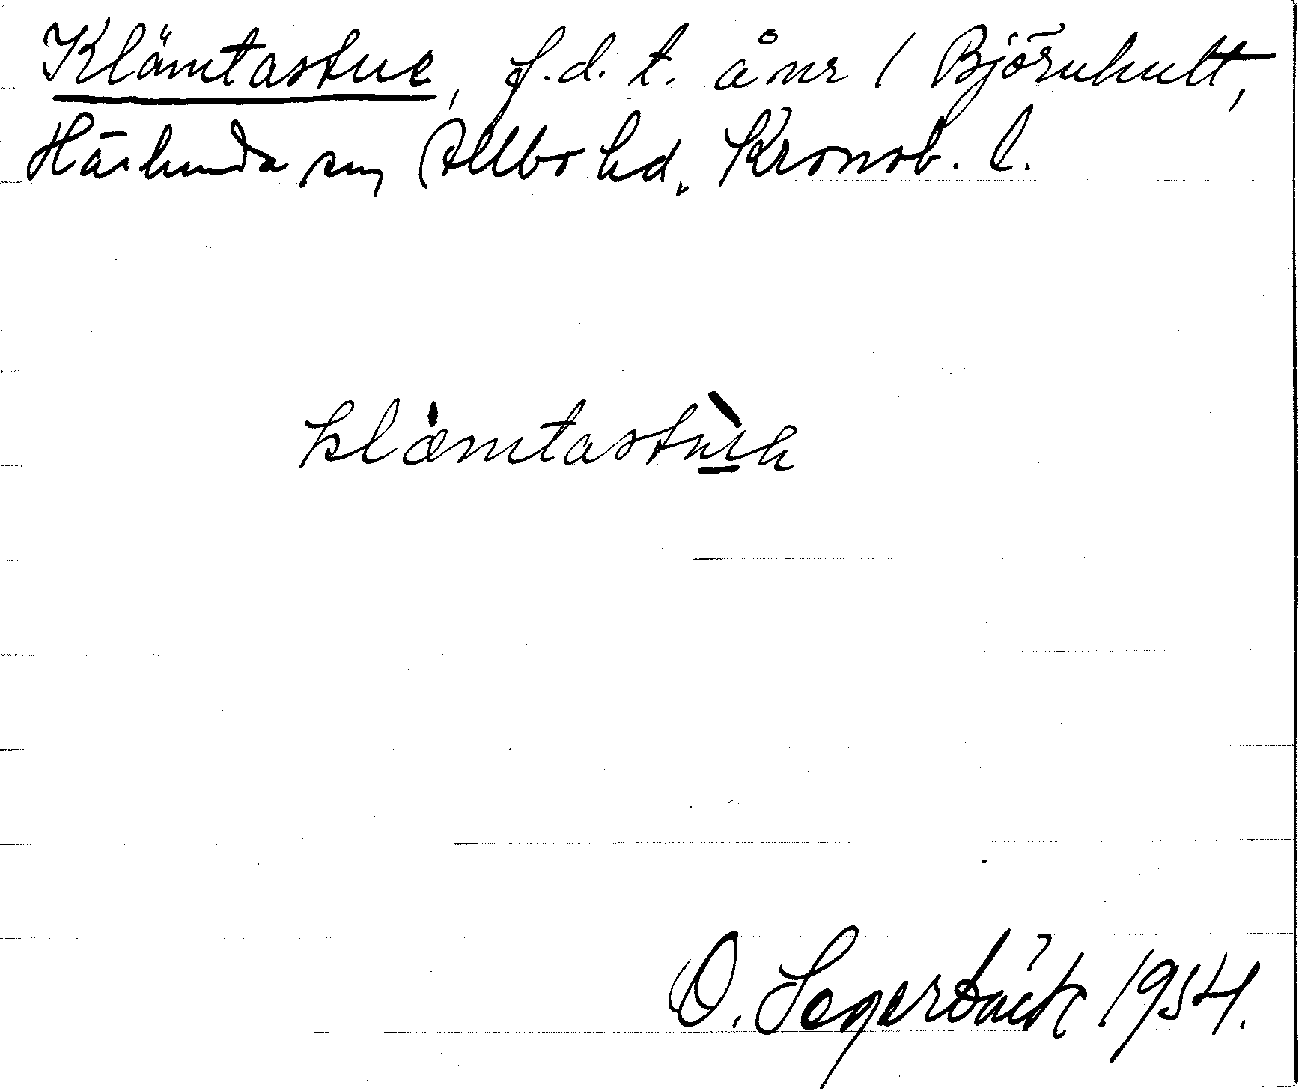 Klämtastue, f.d. t. å nr 1 Björnhult,
Härlunda sn, Allbo hd. Kronob. l.
klæmtastu
O. Segerbäck 1954.